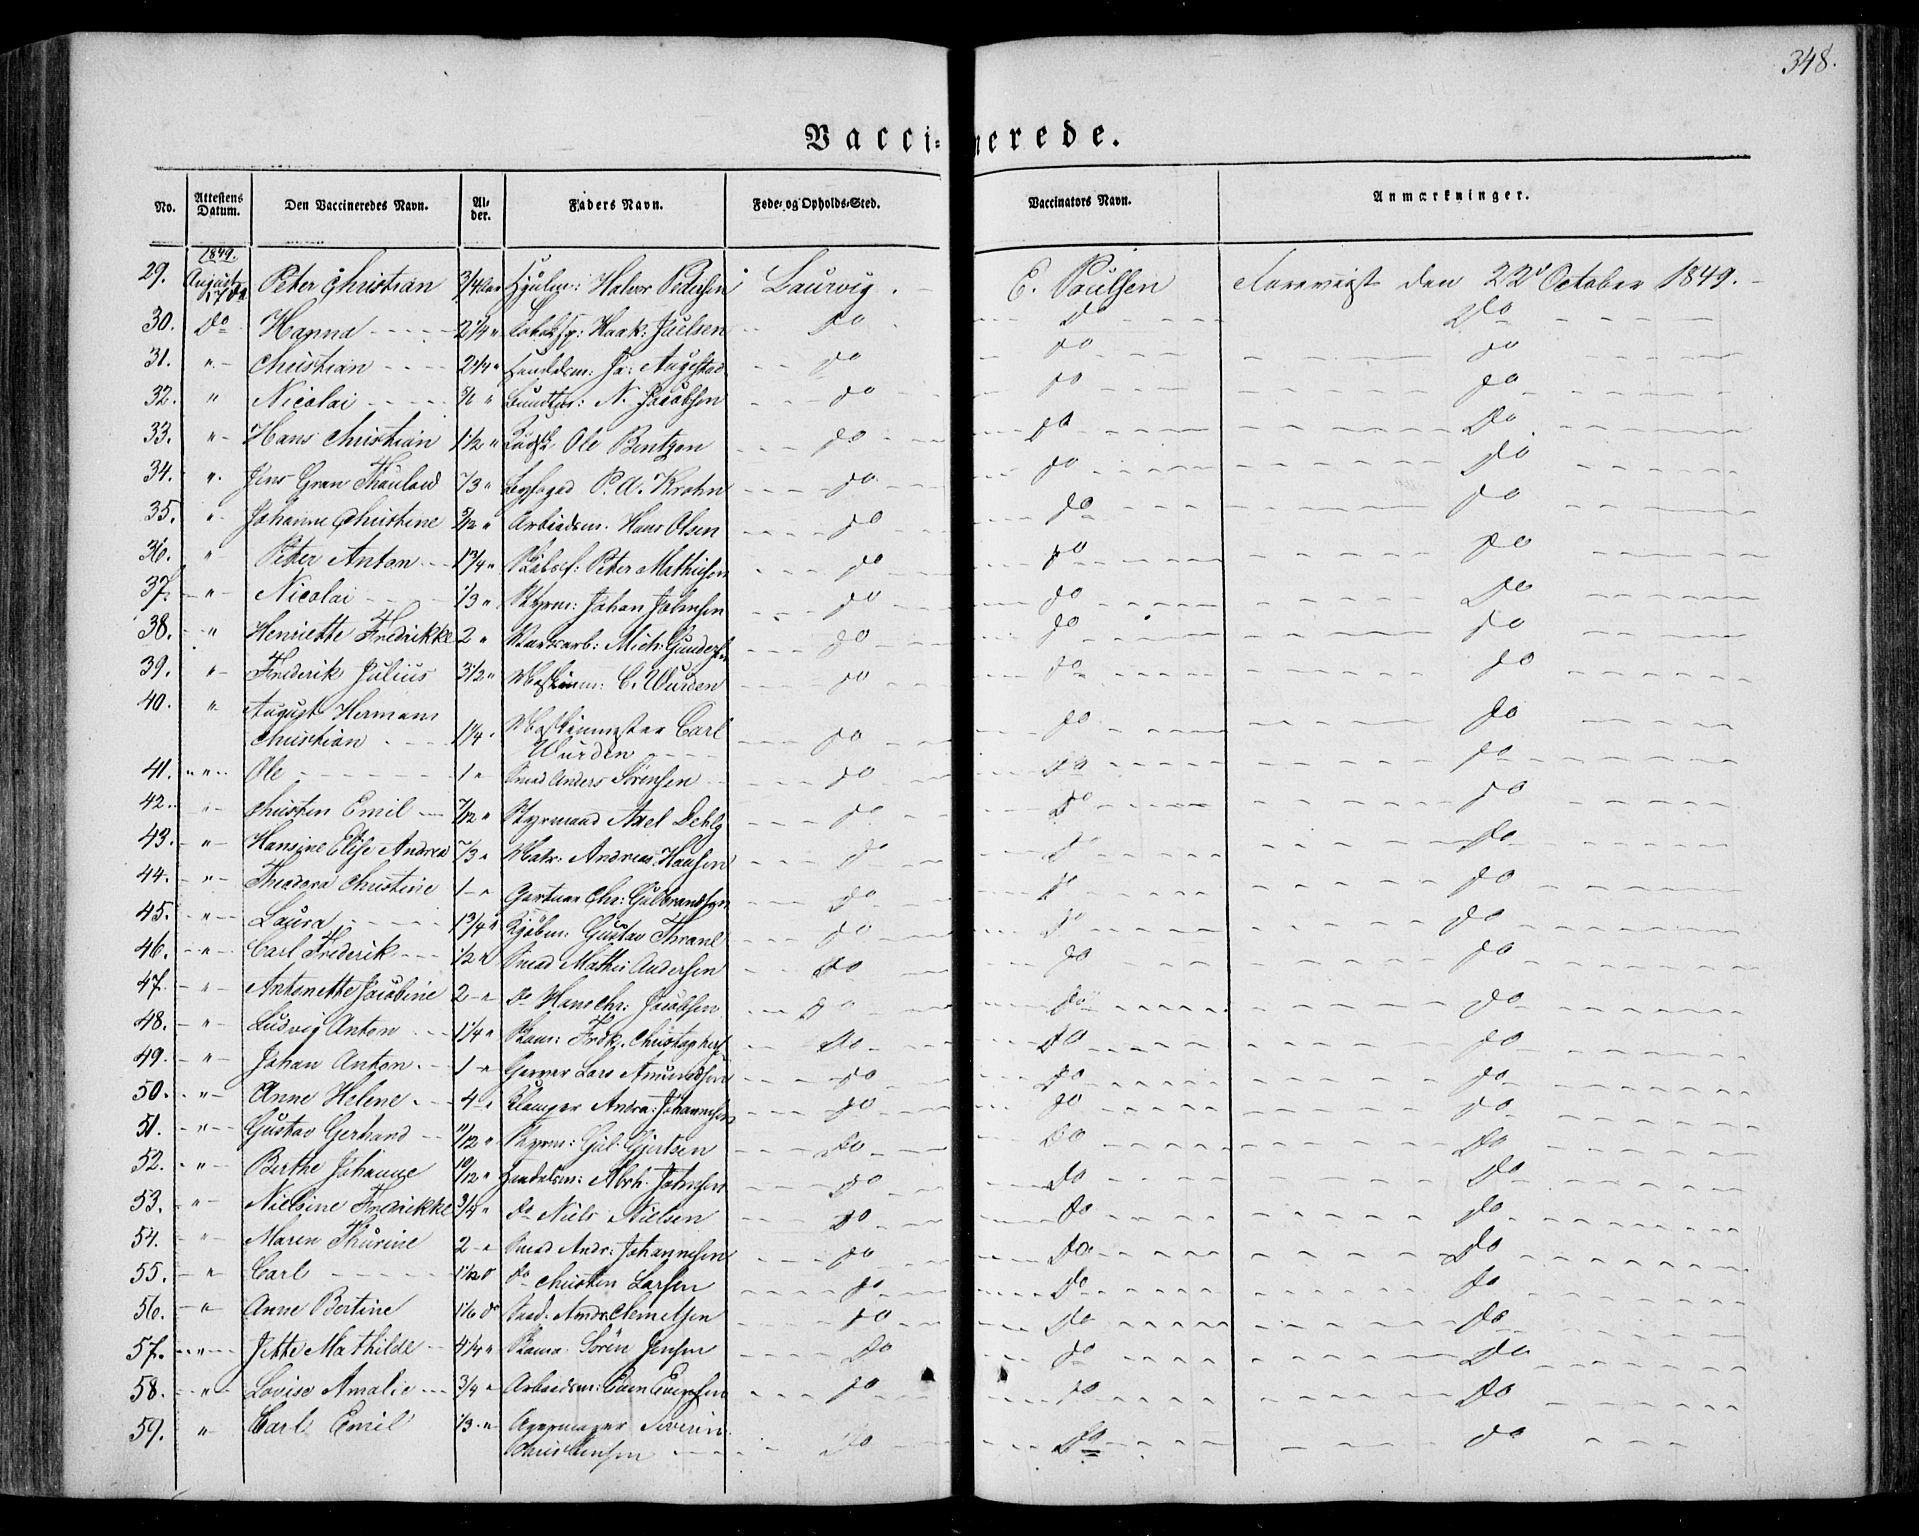 348.
Vacci-nerede.
No. Attestens Datum. Den Vaccineredes Navn. Al-der. Faders Navn. Føde- og Opholds-Sted. Vaccinators Navn. Anmærkninger.
1849.
29. August 17de Peter Christian 3/4 Halvor Pedersen Laurvig. E. Paulsen Foreviist den 22de October 1849.
30. Do Hanna 2 1/4 " Haak: Juelsen Do Do Do
31. " Christian 2 1/4 " Handelsm: Ja: Augestad do do do
32. " Nicolai " N. Jacobsen do do do
33. " Hans Christian 1 1/2 " Ole Bentzen do do Do
34. " Jens Gran Thaulow 7/3 " Byfoged P. A. Krohn do do Do
35. " Johanne Christine " Arbeidsm. Hans Olsen do do do
36. " Peter Anton 1 3/4 " Peter Mathisen do do do
37. " Nicolai 1/3 " Styrm: Johan Johnsen do do Do
38. " Henriette Fredrikke 2 " Mich: Gunders do do do
39. " Frederik Julius 3 1/2 " C. Wurden do do do
40. " August Herman
Christian 1 1/4 " Carl
Wurden do do do
41. " Ole 1 " Smed Anders Sørensen do do do
42. " Christen Emil 7/12 " Styrmand Axel Dehly do do do
43. " Hansine Elise Andrea 7/3 " Matr: Andreas Hansen do do do
44. " Theodora Christine 1 " Gartner Chr: Gulbrandsen do do do
45. " Laura 1 3/4 " Kjøbm: Gustav Thrane do do do
46. " Carl Frederik 1/2 " Smed Mathis Andersen do do do
47. " Antonette Jacobine 2 " Do Hans Chr: Jacobsen do do do
48. " Ludvig Anton 1 1/4 " Fredk. Christophers do do do
49. " Johan Anton 1 " Garver Lars Amundsen do do do
50. " Anne Helene 4 " Andrs: Johannesen do do do
51. " Gustav Gerhard 11/12 " Styrm: Gul. Gjertsen do do do
52. " Berthe Johanne 10/12 " Handelsm: Abrh. Johnsen do do do
53. " Nielsine Fredrikke 3/4 " Do Niels Nielsen do do do
54. " Maren Thurine 2 " Smed Andr: Johannesen do do do
55. " Carl Do Christen Larsen do do do
56. " Anne Bertine 1 1/6 do Smed. Andr. Clemetsen do do do
57. " Jette Mathilde 4 1/4 " Sören Jensen do do do
58. " Lovise Amalie 3/4 " Arbeidsm: Even Evensen do do do
59. " Carl Emil 1/3 " Severin
Christensen do do do